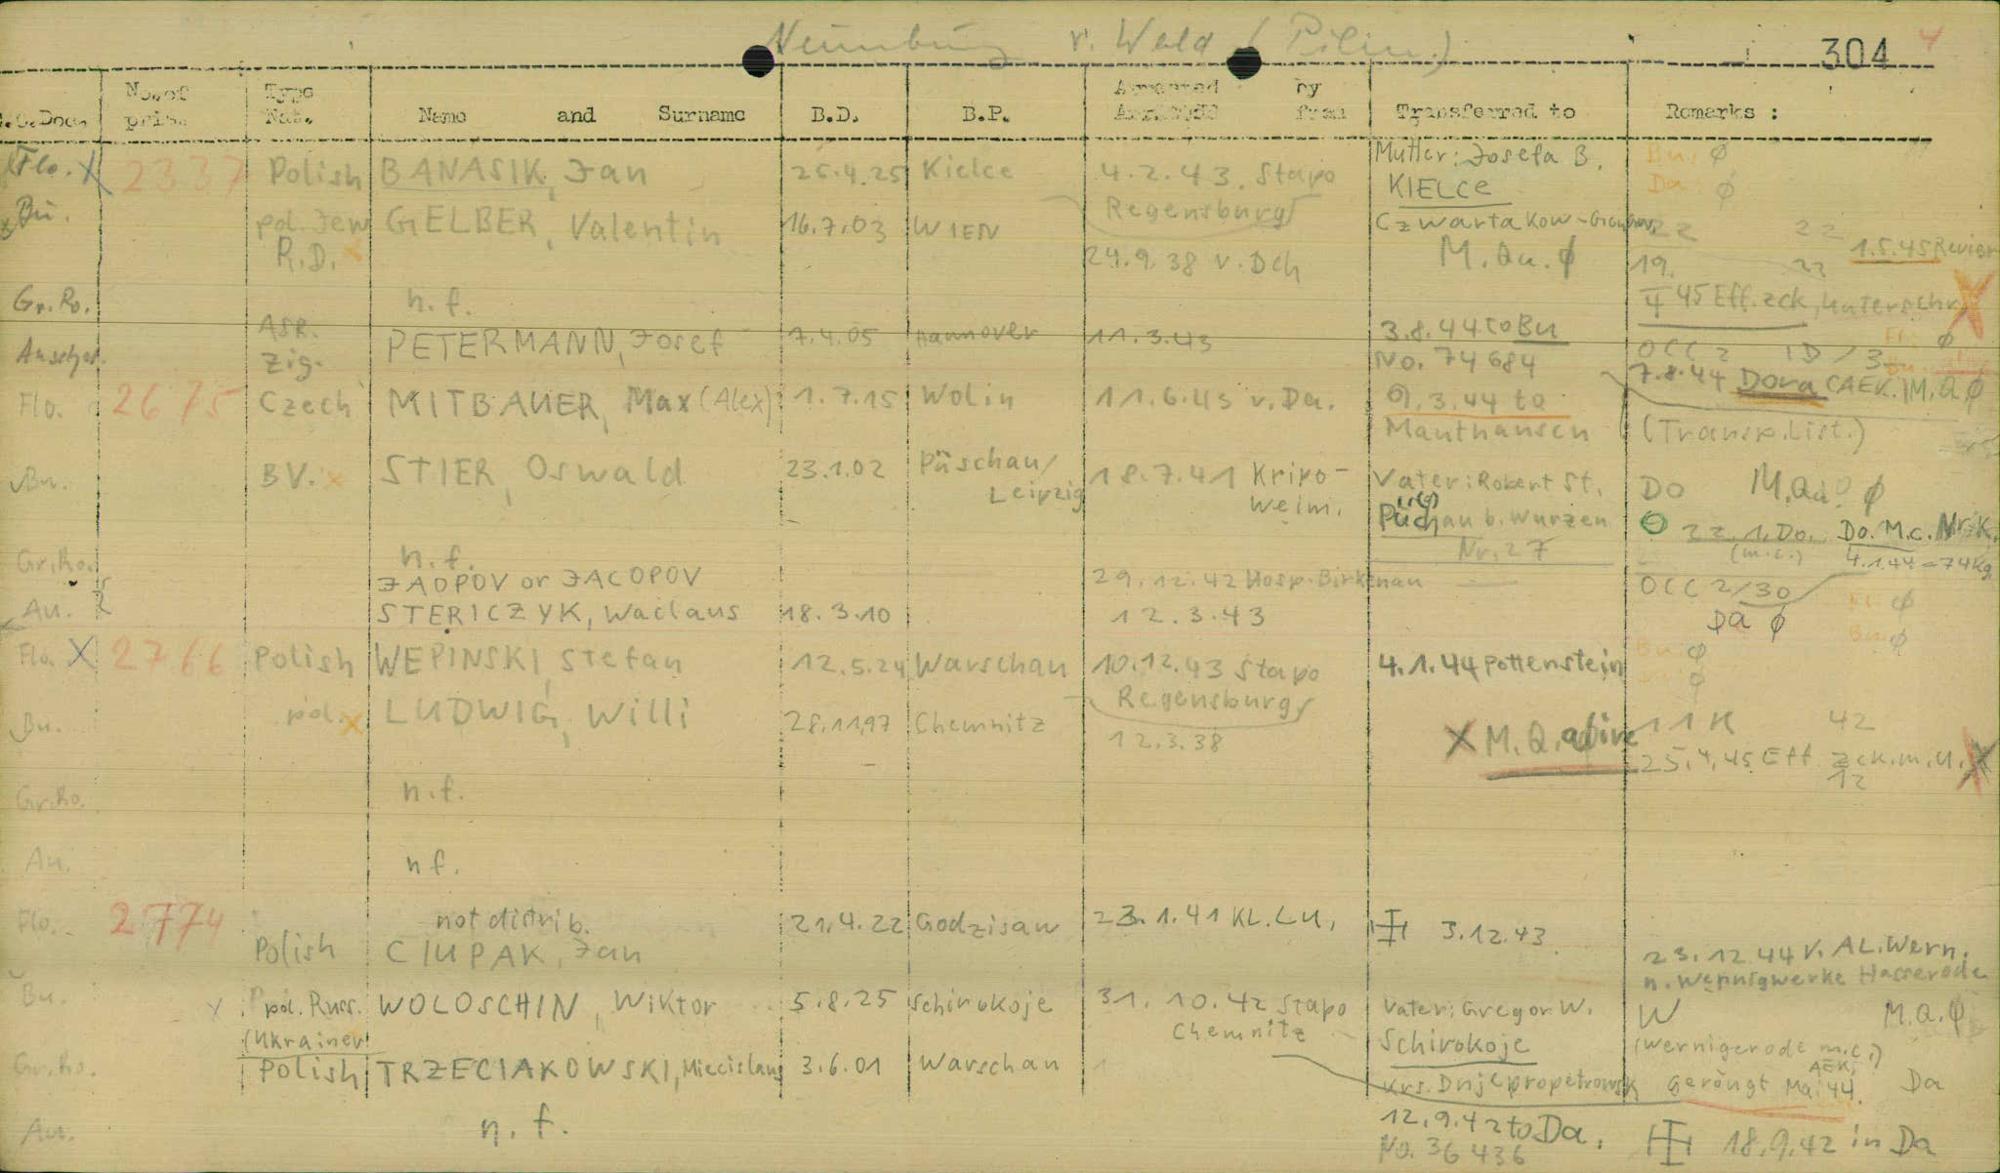 Neunburg v. Wald (Pilin.) 304 4
C.C.Doc. No. of pris. Type Nat. Name and Surname B.D. B.P. Arrested by from Transferred to Remarks :
Flo. X 2337 Polish BANASIK, Jan 25.4.25 Kielce 4.2.43. Stapo Regensburg Mutter: Josefa B. Bu. ø
KIELCE Da ø
Czwartakow-
Bu. pol. Jew R.D. x GELBER, Valentin 16.7.03 WIEN 24.9.38 v. Dch M.Qu. ø 22 22 1.5.45 Revier
19. 22
4 45 Eff.zck, Unterschr. X
Gr.Ro. n.f.
Auschw. ASR. Zig. PETERMANN, Josef 7.4.05 Hannover 11.3.43 3.8.44 to Bu ø
No. 74684 OCC 2 ID/3
7.8.44 Dora (AEK.) M.Q ø
Flo. 2675 Czech MITBAUER, Max (Alex) 1.7.15 Wolin 11.6.43 v. Da. 9.3.44 to
Mauthausen (Transp.List.)
Bu. BV. x STIER, Oswald 23.1.02 Püschau/ Leipzig 18.7.41 Kripo- Weim. Vater: Robert St. Do M.Qu. ø
Püchau b. Wurzen 22.1. Do. Do. M.c. Nr.K.
Nr. 27 (m.c.) 4.1.44 = 74Kg
Gr.Ro. n.f.
JAOPOV or JACOPOV 29.12.42 Hosp. Birkenau OCC 2/30
Au. STERICZYK, Waclaus 18.3.10 12.3.43 Da ø Fl. ø
Bu. ø
Flo. X 2766 Polish WEPINSKI, Stefan 12.5.24 Warschau 10.12.43 Stapo Regensburg 4.1.44 Pottenstein Bu ø
ø
Bu. pol. x LUDWIG, Willi 28.11.97 Chemnitz 12.3.38 X M.Q. alive 11 K 42
25.4.45 Eff zck.m.U. X
12
Gr.Ro. n.f.
Au. n f.
Flo. 2774 not distrib.
Polish CIUPAK, Jan 21.4.22 Godzisaw 23.1.41 KL.Lu. 3.12.43
23.12.44 v. AL.Wern.
n. Wernigwerke Hasserode
Bu. pol. Russ. (Ukrainer) WOLOSCHIN, Wiktor 5.8.25 Schirokoje 31.10.42 Stapo Chemnitz Vater: Gregor W. W M.Q. ø
Schirokoje (Wernigerode m.c.)
Krs. Dnjepropetrowsk AEK.
Gr.Ro. Polish TRZECIAKOWSKI, Miecislaus 3.6.01 Warschau Mai 44. Da
12.9.42 to Da. 18.9.42 in Da
No. 36436
Au. n. f.